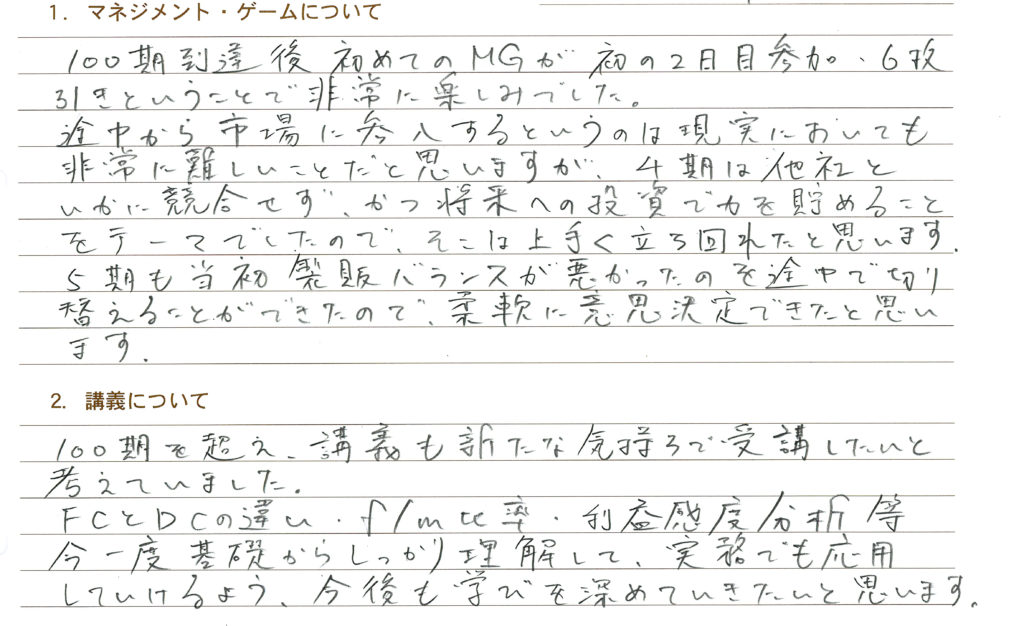 1. マネジメント・ゲームについて
100期到達後 初めてのMGが 初の2日目参加、6枚
引きということで非常に楽しみでした。
途中から市場に参入するというのは現実においても
非常に難しいことだと思いますが、4期は他社と
いかに競合せず、かつ将来への投資で力を貯めること
をテーマでしたので、そこは上手く立ち回れたと思います。
5期も当初製販バランスが悪かったのを途中で切り
替えることができたので、柔軟に意思決定できたと思い
ます。
2. 講義について
100期を超え、講義も新たな気持ちで受講したいと
考えていました。
FCとDCの違い・f/m比率・利益感度分析等
今一度基礎からしっかり理解して、実務でも応用
していけるよう、今後も学びを深めていきたいと思います。